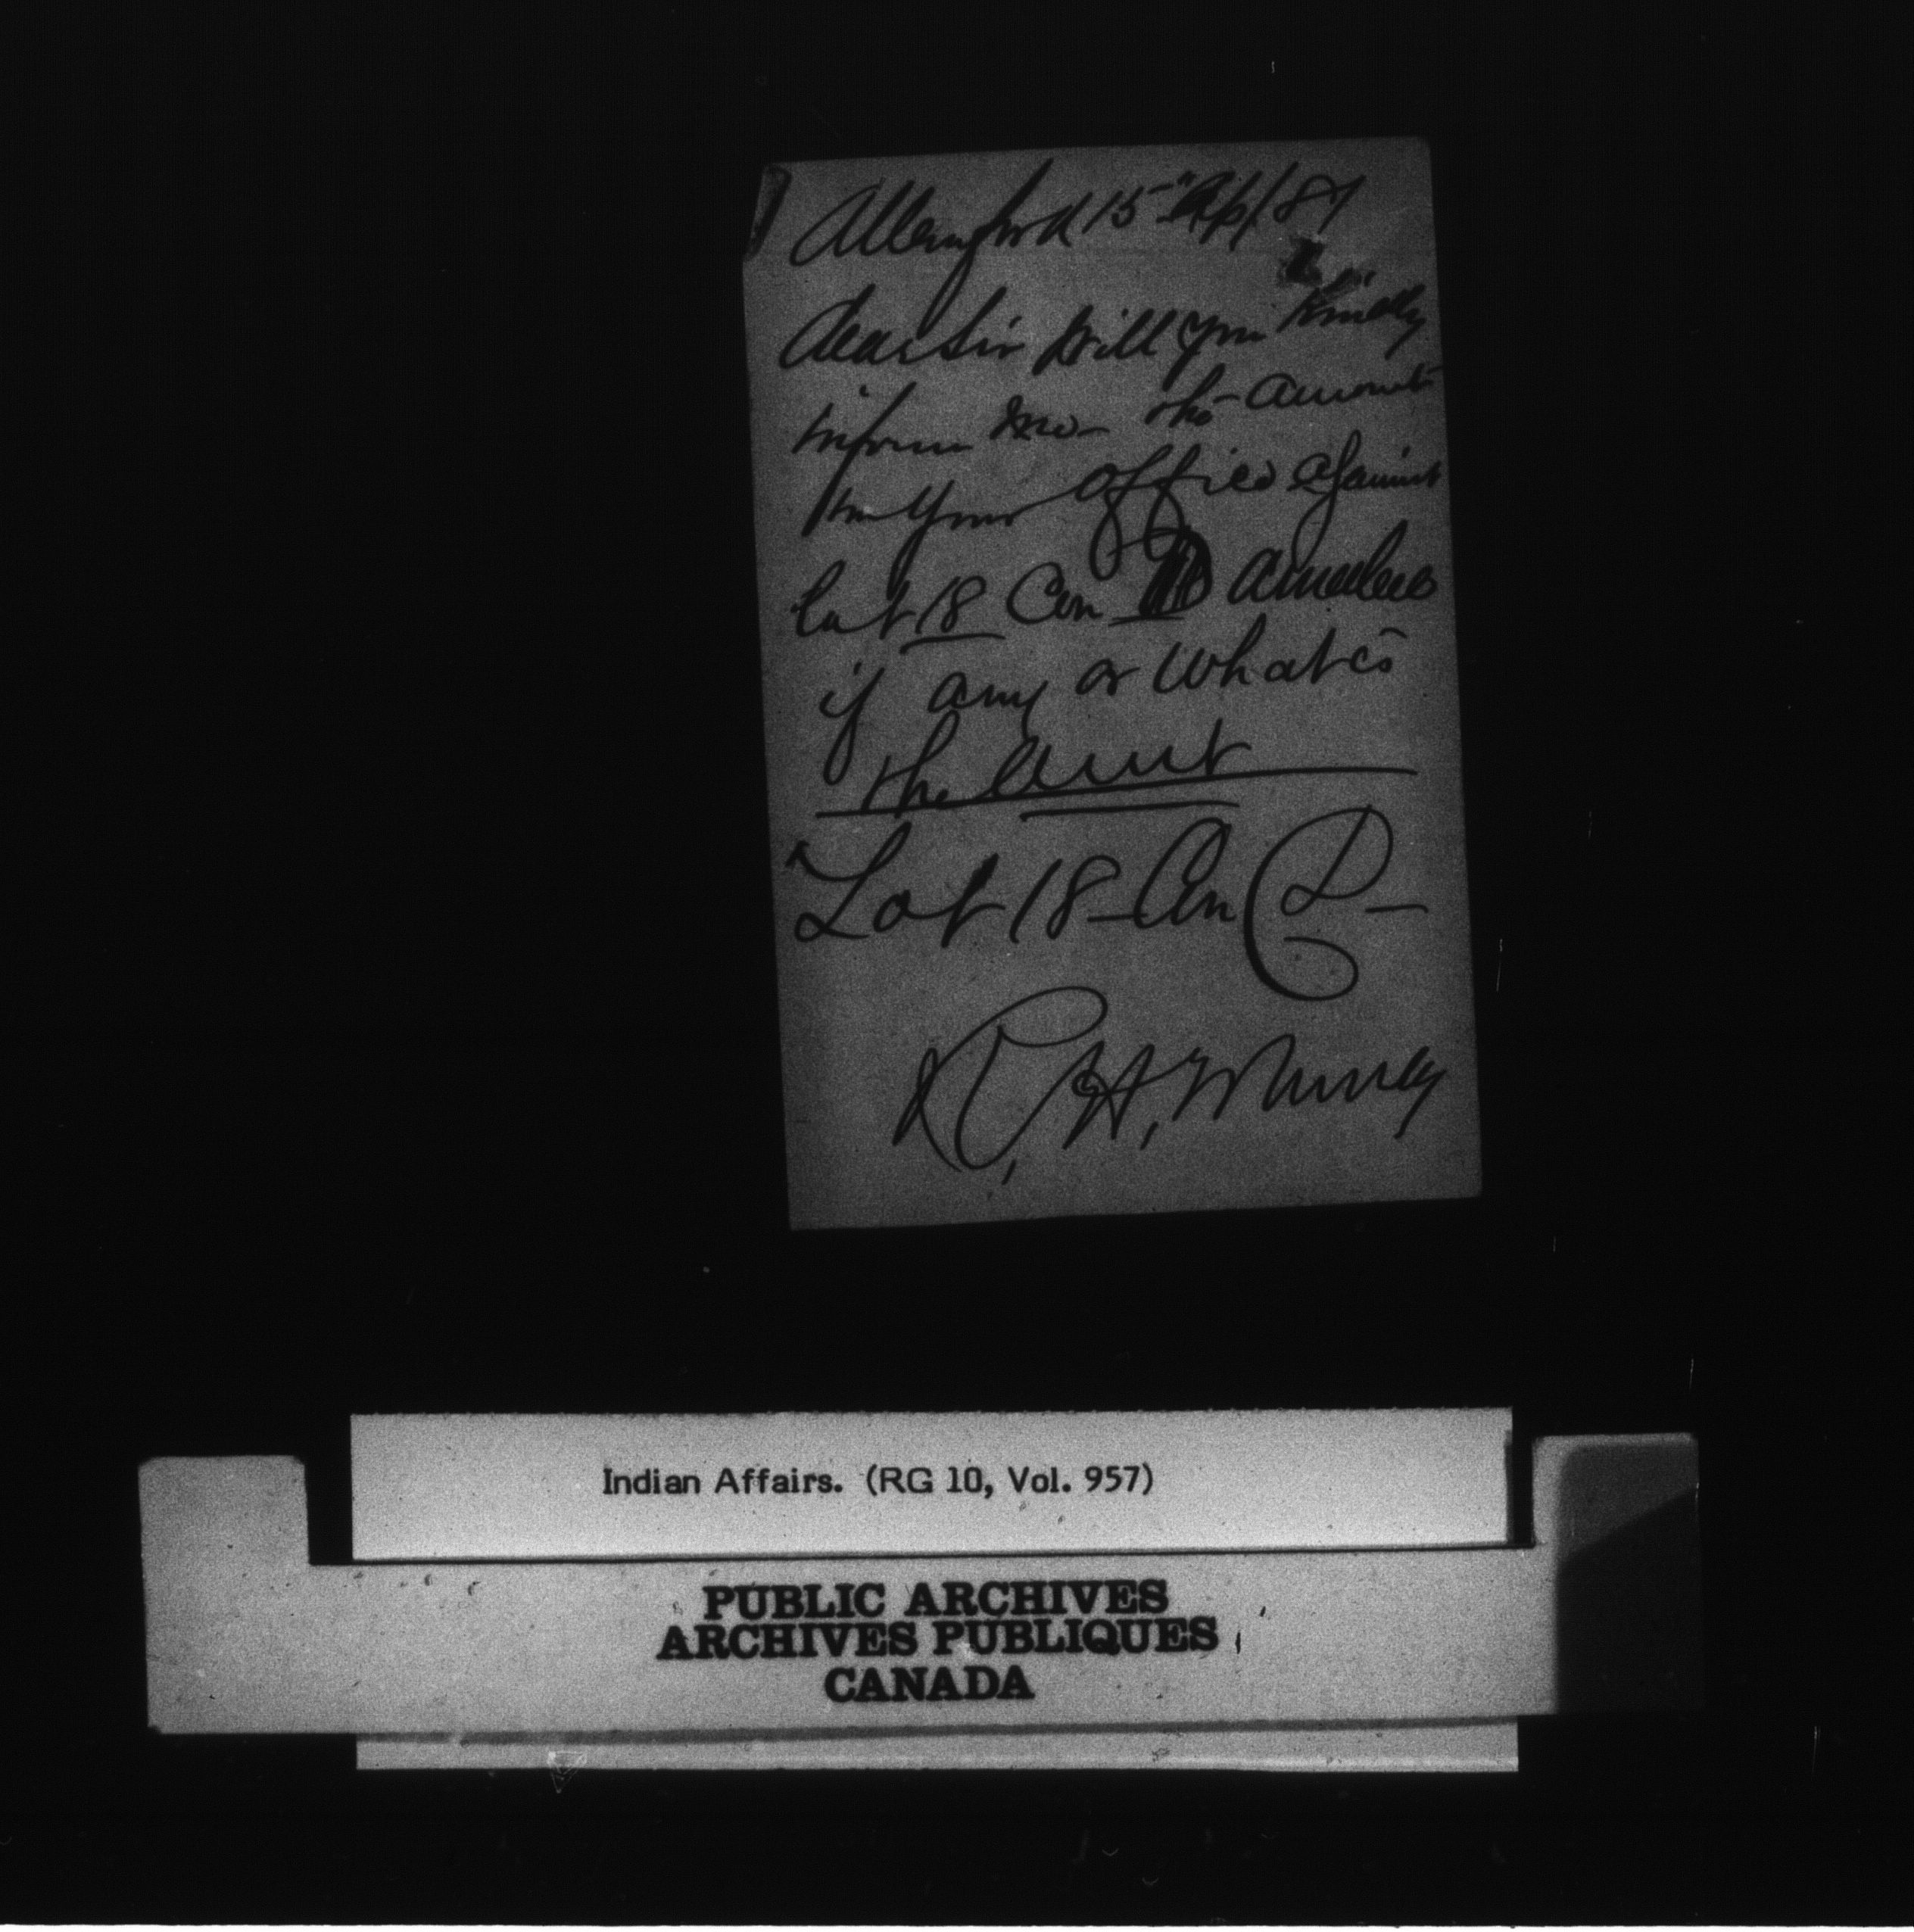 Allenford 15" Apl 87
Dear Sir Will you Kindly
inform me the amount
in your office against
lot 18 Con D Amabel
if any or What is
the Amt
Lot 18 - Con D -
R, H, Murray
Indian Affairs. (RG 10, Vol. 957)
PUBLIC ARCHIVES
ARCHIVES PUBLIQUES
CANADA